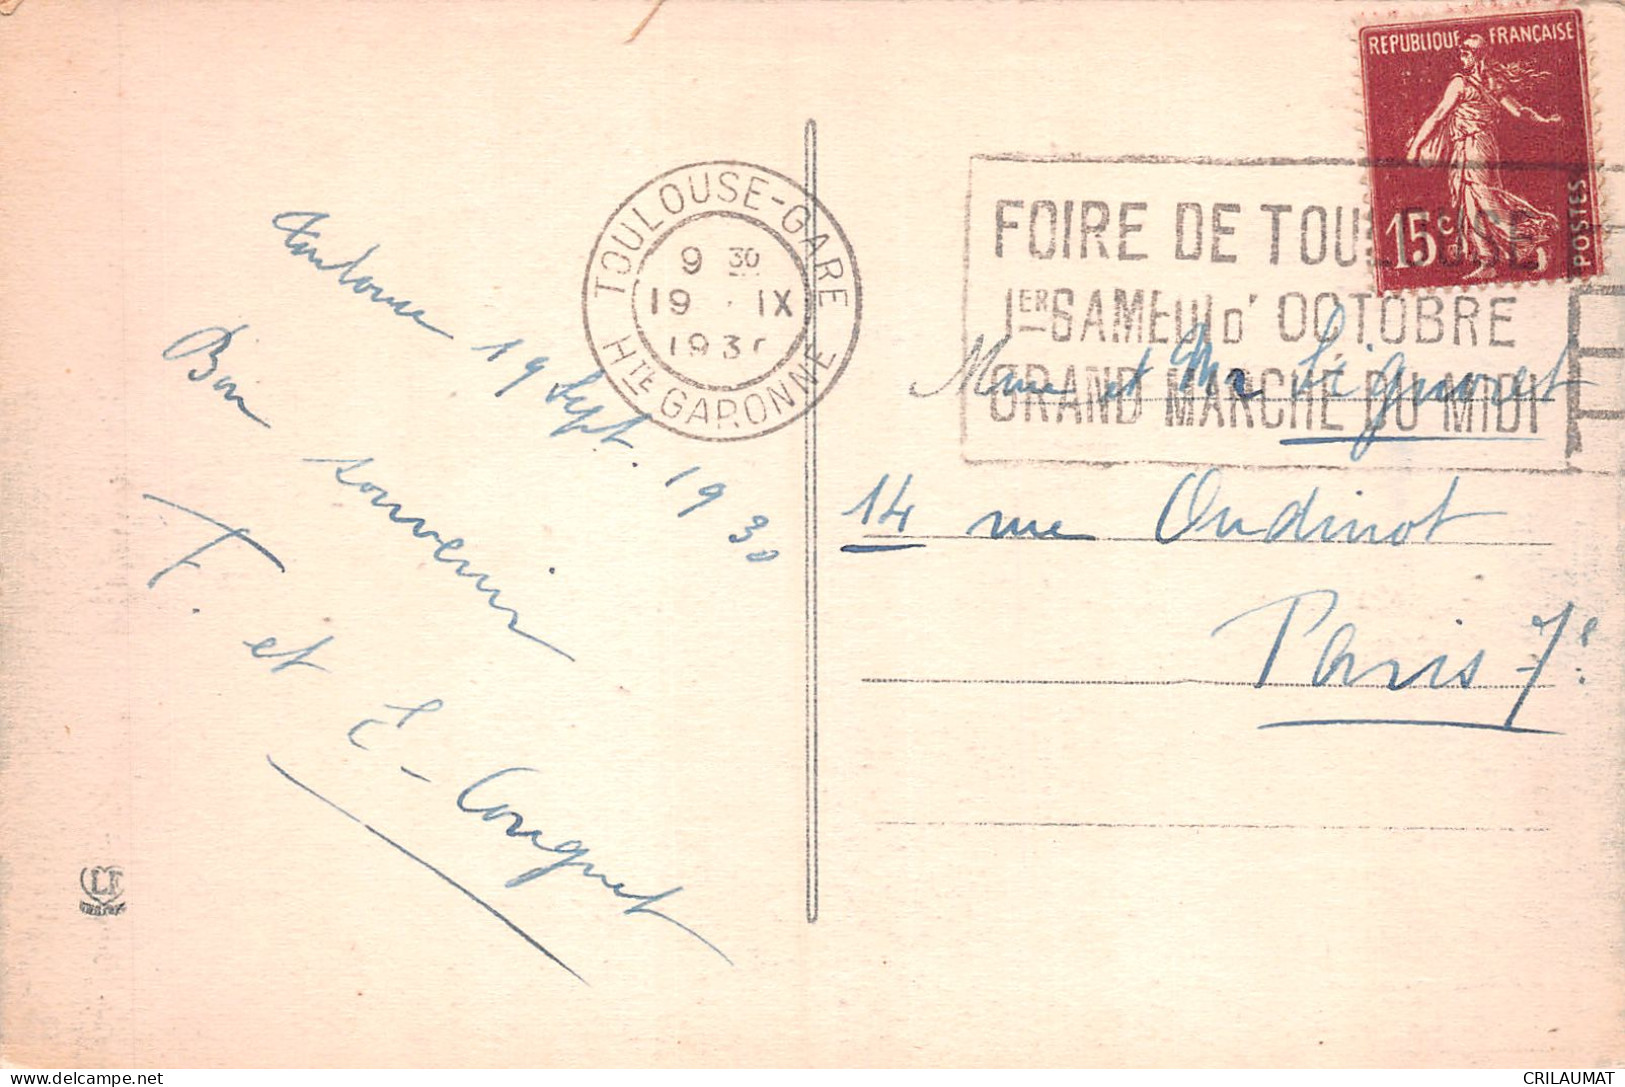 Toulouse 19 Sept. 1930
Bon souvenir
F. et E. Couguet
TOULOUSE-GARE
9 30
19 . IX
193
HTE GARONNE
REPUBLIQUE FRANÇAISE
15c
POSTES
FOIRE DE TOULOUSE
1ER SAMEDI D'OCTOBRE
GRAND MARCHÉ DU MIDI
Mme et Mr Signoret
14 rue Oudinot
Paris 7e
CRILAUMAT